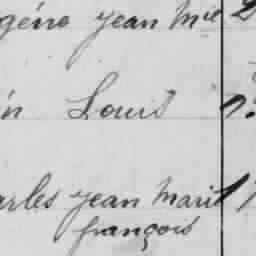 gène jean Mie 2
in Louis
arles jean Marie 1
françois